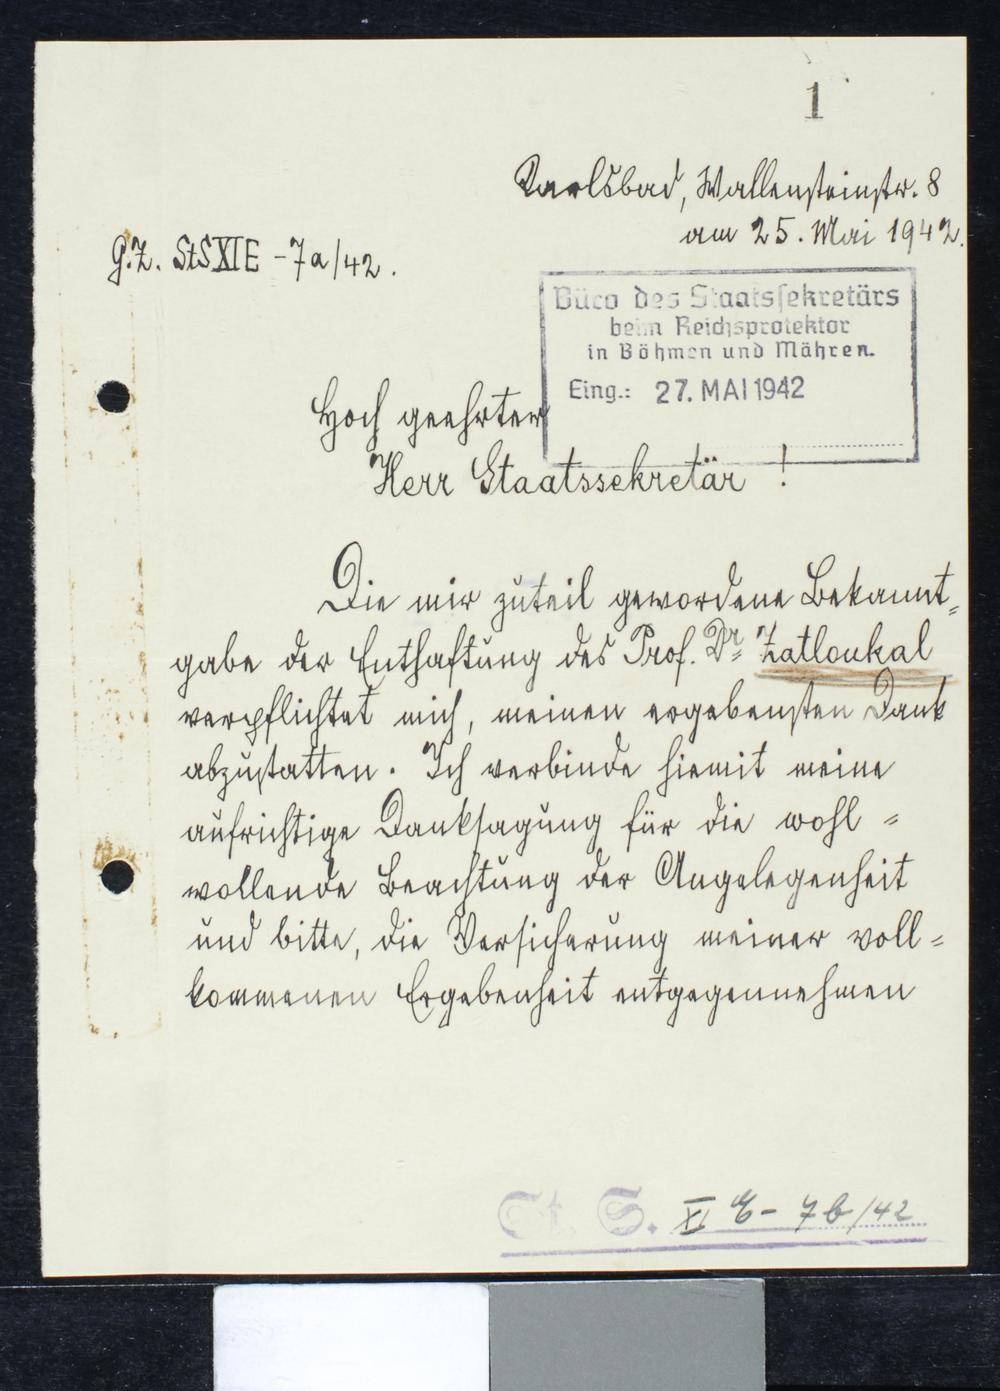 1
Karlsbad, Wallensteinstr. 8
am 25. Mai 1942.
G.Z. StS XI E - 7a/42.
Büro des Staatssekretärs
beim Reichsprotektor
in Böhmen und Mähren.
Eing.: 27. MAI 1942
Hoch geehrter
Herr Staatssekretär !
Die mir zuteil gewordene Bekannt=
gabe der Enthaftung des Prof. Dr. Zatloukal
verpflichtet mich, meinen ergebensten Dank
abzustatten. Ich verbinde hiemit meine
aufrichtige Danksagung für die wohl =
wollende Beachtung der Angelegenheit
und bitte, die Versicherung meiner voll =
kommenen Ergebenheit entgegennehmen
St. S. XI E - 7b/42